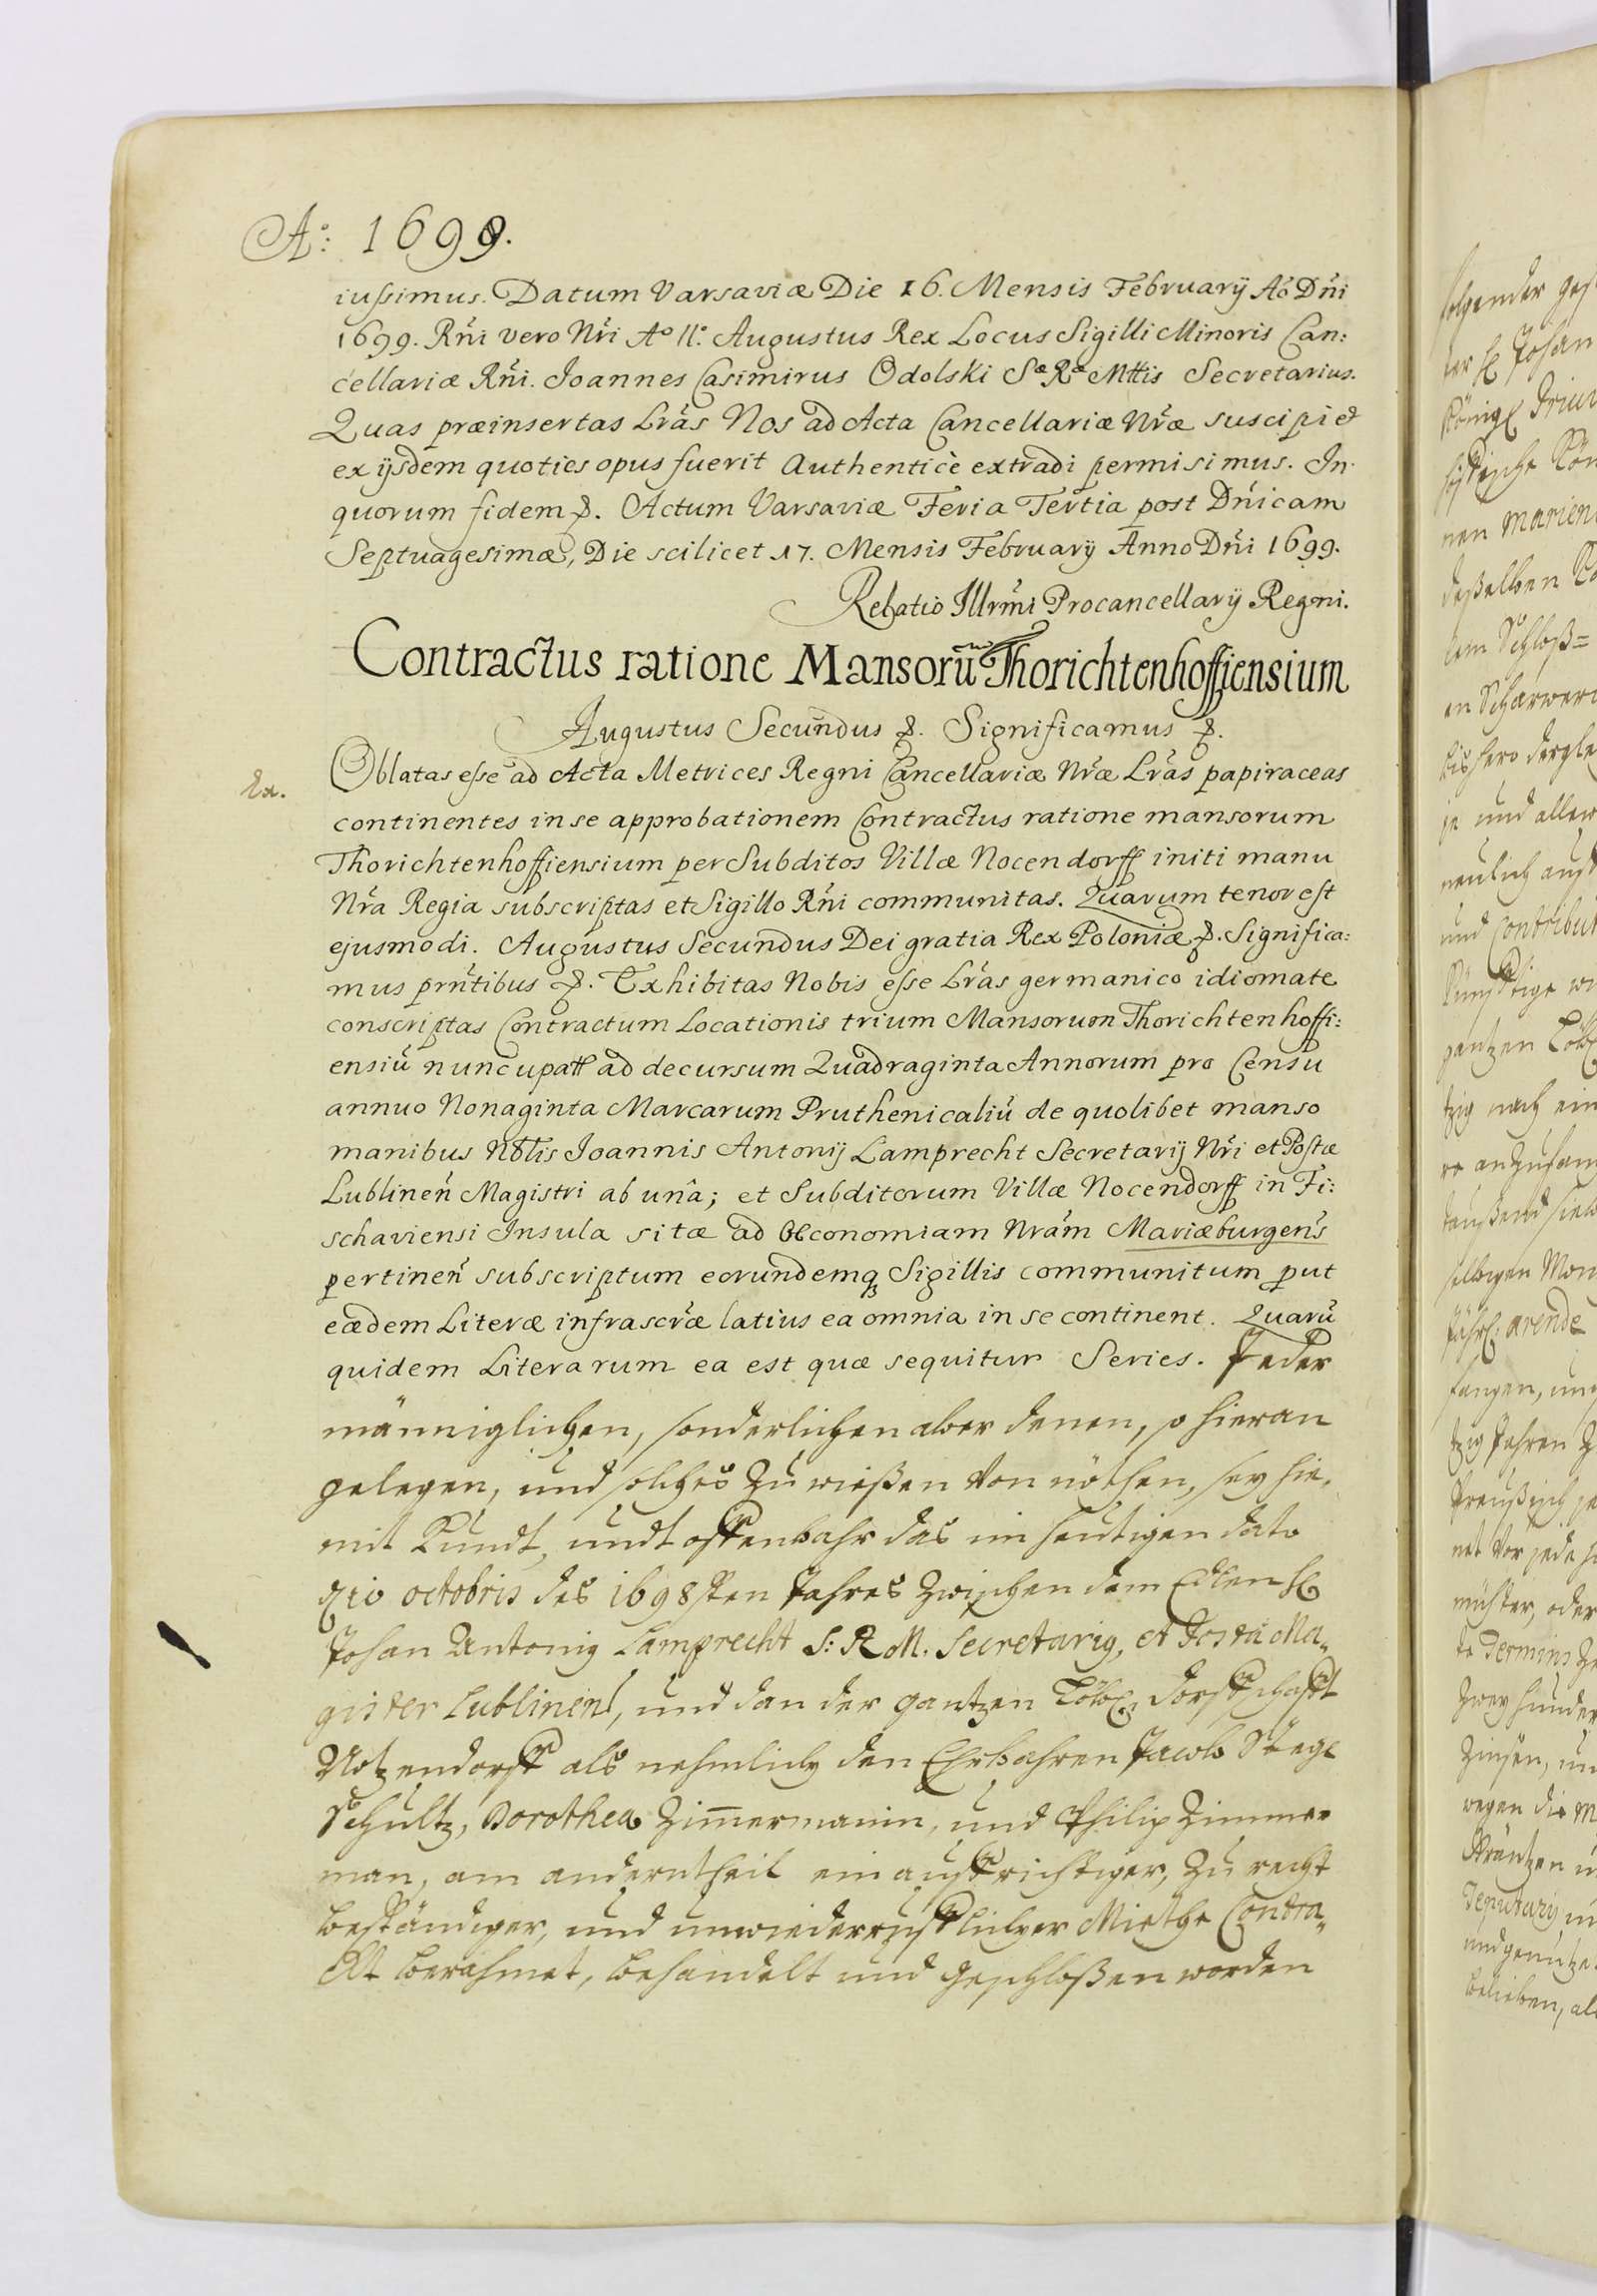 Aº: 1699.
iussimus. Datum Varsaviæ Die 16. Mensis Februarÿ Aô Dñi
1699. Rñi vero Nri Aº IIº. Augustus Rex Locus Sigilli Minoris Can:
cellariæ Rñi. Joannes Casimirus Odolski Sæ Ræ Mttis Secretarius.
Quas præinsertas Lras Nos ad Acta Cancellariæ Nræ suscipi et
ex ijsdem quoties opus fuerit Authenticè extradi permisimus. In
quorum fidem &. Actum Varsaviæ Feria Tertia post Dñicam
Septuagesimæ, Die scilicet 17. Mensis Februarÿ Anno Dñi 1699.
Relatio Illrmi Procancellarÿ Regni.
Contractus ratione Mansorũ Thorichtenhoffiensium
Augustus Secundus &. Significamus &.
Ex.
Oblatas esse ad Acta Metrices Regni Cancellariæ Nræ Lras papiraceas
continentes in se approbationem Contractus ratione mansorum
Thorichtenhoffiensium per Subditos Villæ Nocendorff initi manu
Nra Regia subscriptas et Sigillo Rñi communitas. Quarum tenor est
ejusmodi. Augustus Secundus Dei gratia Rex Poloniæ &. Significa:
mus prñtibus &. Exhibitas Nobis esse Lras germanico idiomate
conscriptas Contractum Locationis trium Mansorum Thorichtenhoffi:
ensiũ nuncupatt ad decursum Quadraginta Annorum pro Censu
annuo Nonaginta Marcarum Pruthenicaliũ de quolibet manso
manibus Nblis Joannis Antonij Lamprecht Secretarij Nri et Postæ
Lublineñ Magistri ab unâ; et Subditorum Villæ Nocendorff in Fi:
schaviensi Insula sitæ ad Oeconomiam Nram Mariæburgens
pertineñ subscriptum eorundemq3 Sigillis communitum put
eædem Literæ infrascræ latius ea omnia in se continent. Quarũ
quidem Literarum ea est quæ sequitur Series. Jeder
männiglichen, sonderlichen aber denen, so hieran
gelegen, und solches zu wießen von nöthen, sey hie-
mit Kundt, undt offenbahr das im heutigen dato
Xio octobris des 1698sten Jahres zwischen dem Edlen H
Johan Antonig Lamprecht S: R M. Secretarig, et Posta Ma-
gister Lublinens, und dan der gantzen Löbl. dorffschafft
Notzendorff als nehmlich den Ehrbahren Jacob Stege
Schultz, Dorothea Zimmermanin, und Philip Zimmer
man, am anderntheil ein auffrichtiger, zu recht
beständiger, und unwiederrufflicher Miethe Contra-
ckt berahmet, behandelt und geschloßen worden